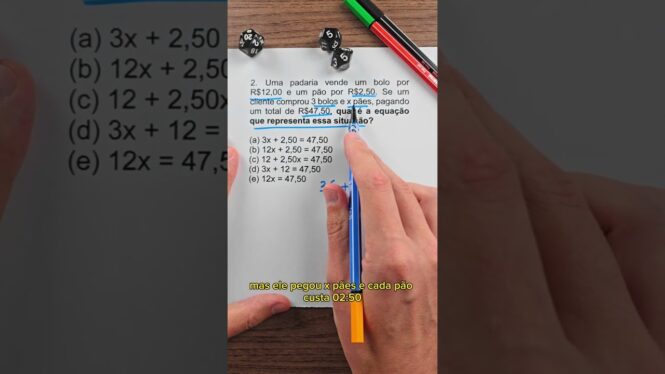 2. Uma padaria vende um bolo por
R$12,00 e um pão por R$2,50. Se um
cliente comprou 3 bolos e x pães, pagando
um total de R$47,50, qual é a equação
que representa essa situação?
(a) 3x + 2,50 = 47,50
(b) 12x + 2,50 = 47,50
(c) 12 + 2,50x = 47,50
(d) 3x + 12 = 47,50
(e) 12x = 47,50
mas ele pegou x pães e cada pão
custa 02:50
(a) 3x + 2,50
(b) 12x + 2,50
(c) 12 + 2,50x
(d) 3x + 12 =
(e) 12x = 47,5